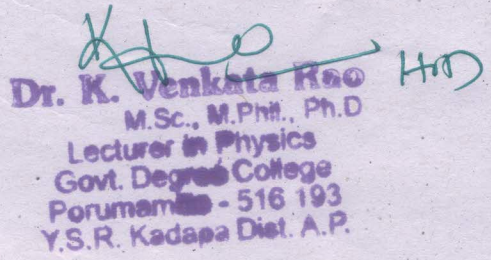 Dr. K. Venkata Rao HOD
M.Sc., M.Phil., Ph.D
Lecturer in Physics
Govt. Degree College
- 516 193
Y.S.R. Kadapa Dist. A.P.